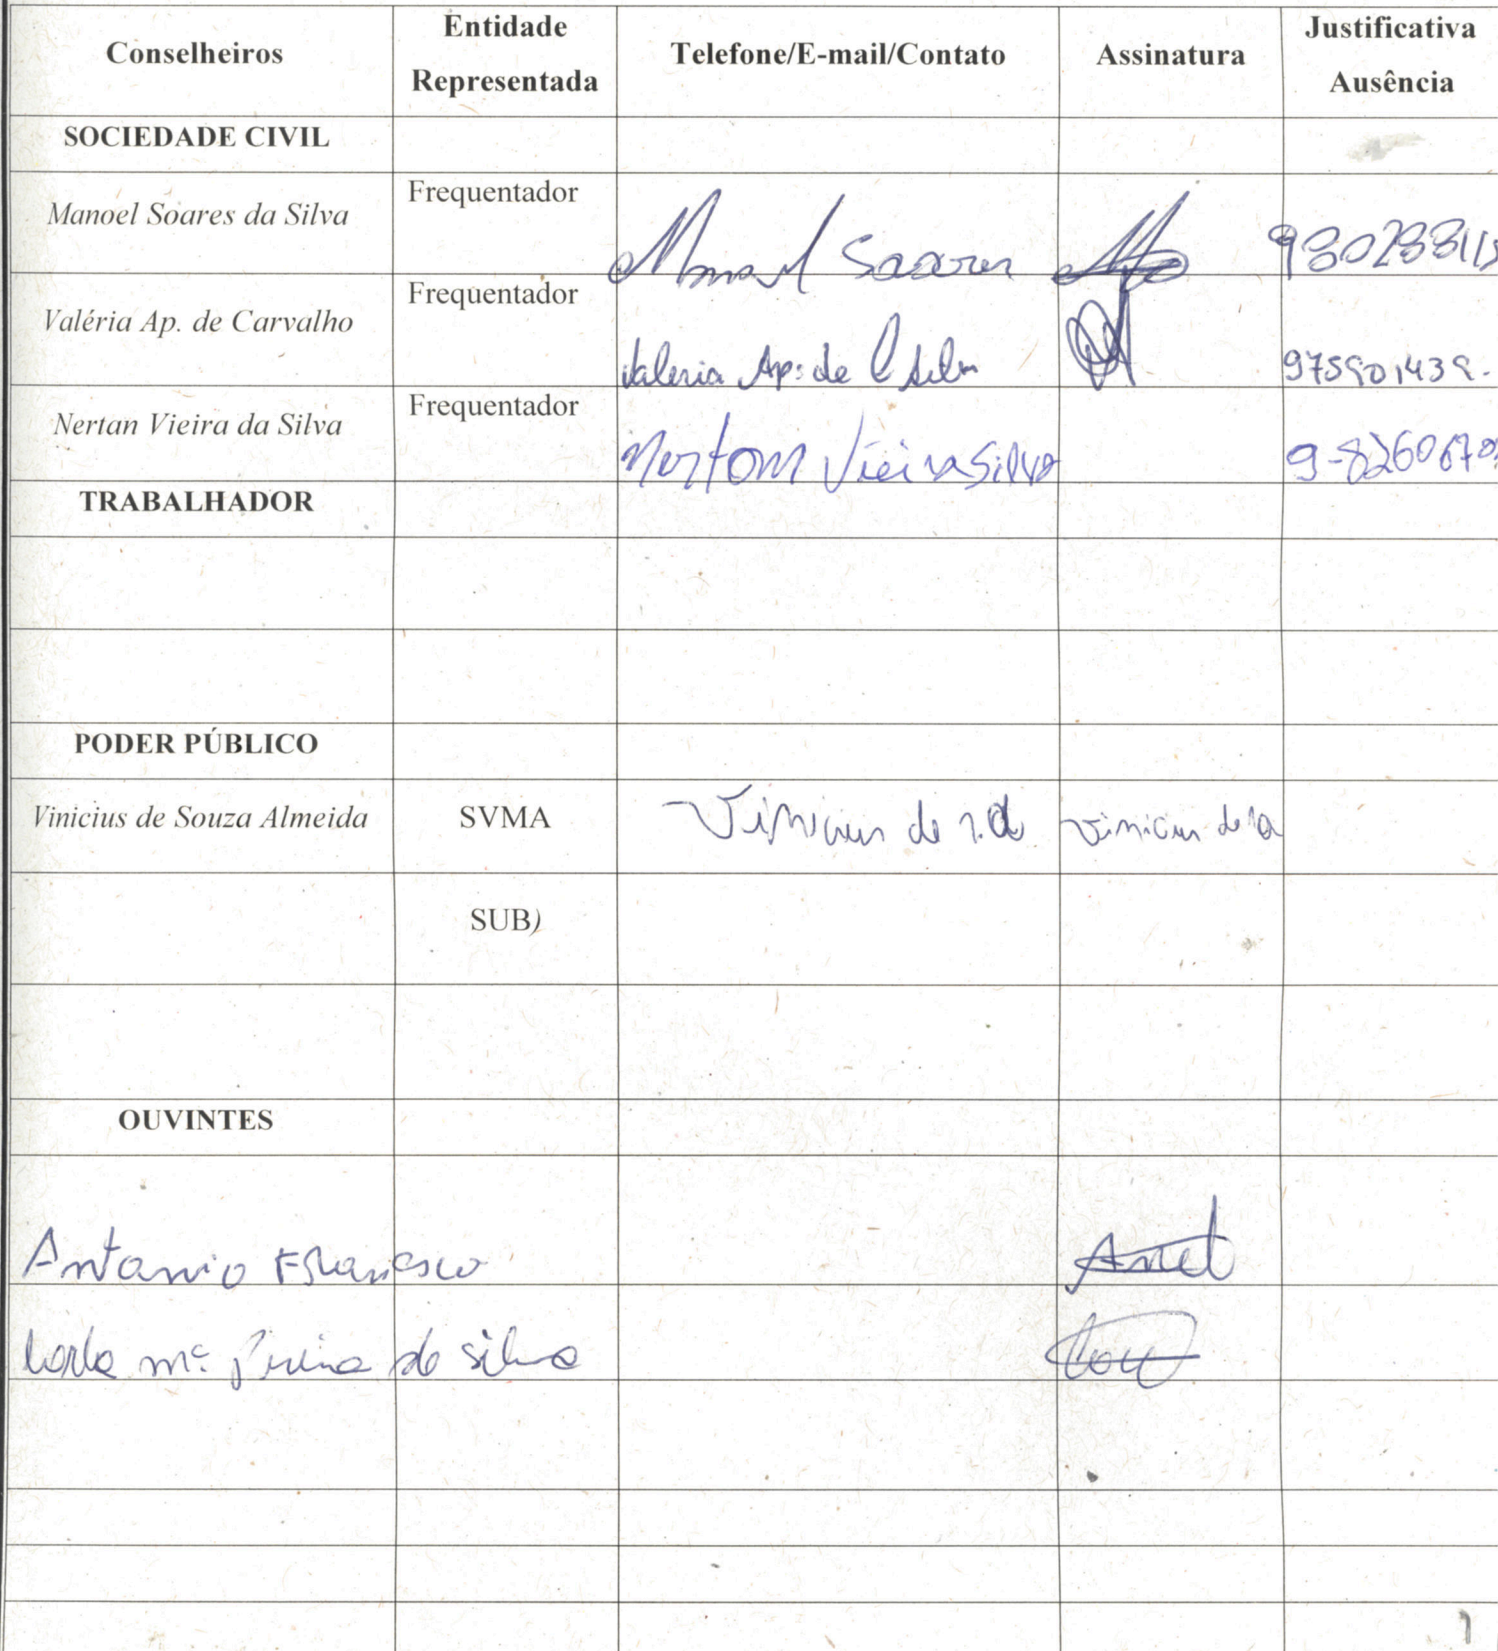 Conselheiros Entidade Representada Telefone/E-mail/Contato Assinatura Justificativa Ausência
SOCIEDADE CIVIL
Manoel Soares da Silva Frequentador Manoel Soares
Valéria Ap. de Carvalho Frequentador Valeria Ap. de C Silva 975901439.
Nertan Vieira da Silva Frequentador Nertan Vieira Silva
TRABALHADOR
PODER PÚBLICO
Vinicius de Souza Almeida SVMA Vinicius de Vinicius de
SUB)
OUVINTES
Antonio Francisco
Mª da Silva